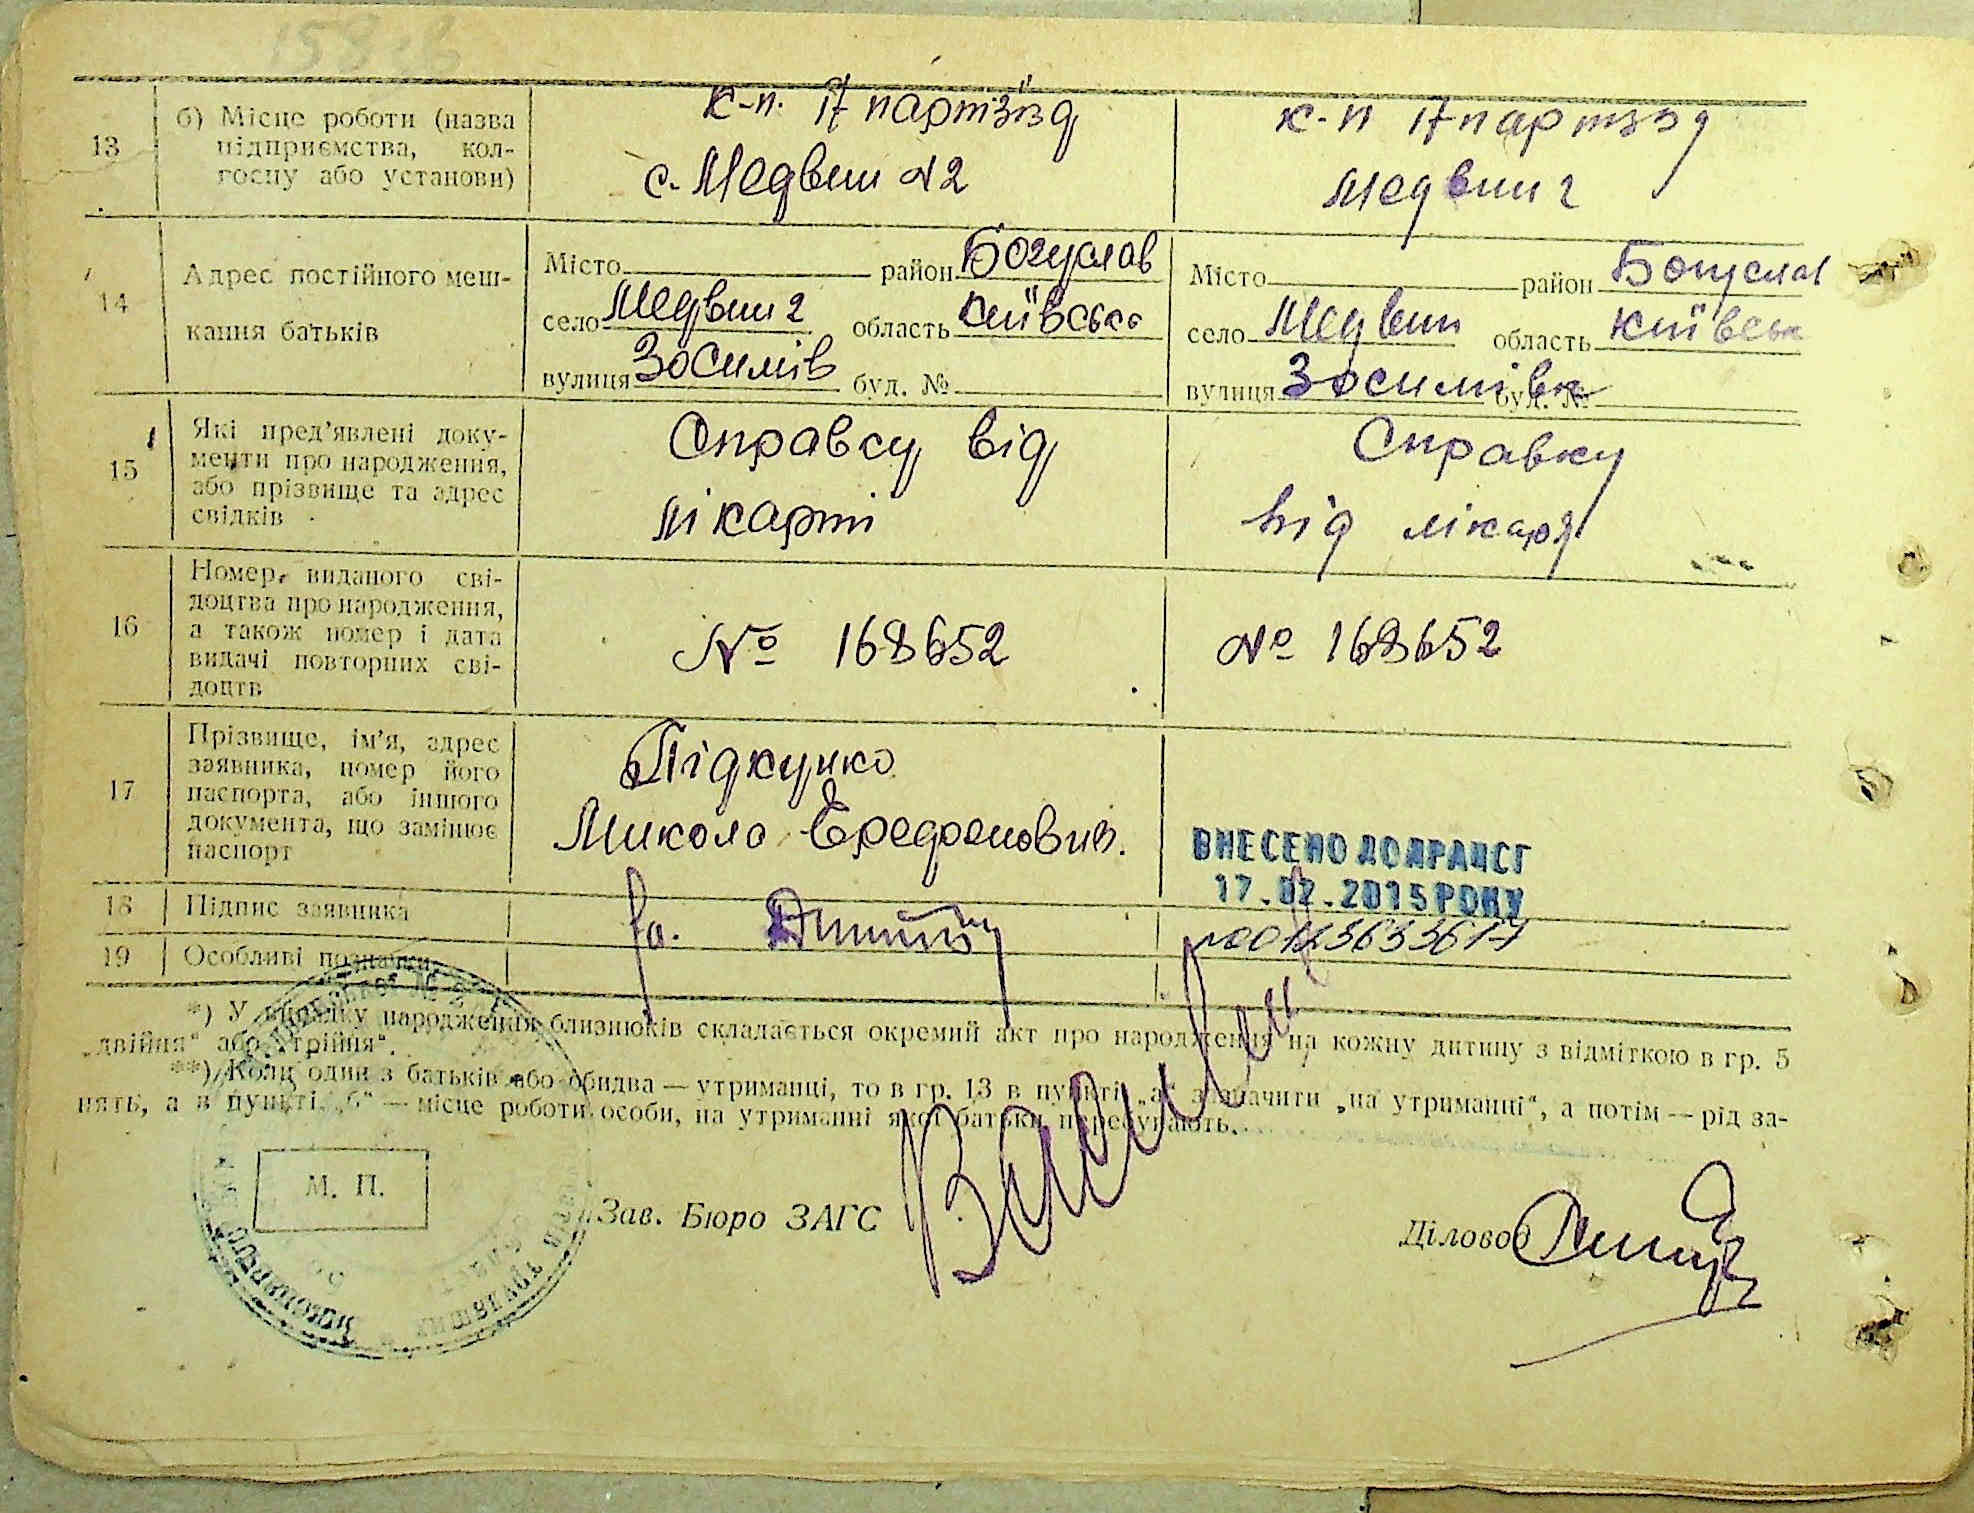 13
б) Місце роботи (назва
підприємства, кол-
госпу або установи)
к-п. 17 партз'їзд
с. Медвин №2
к-п 17 партззд
Медвин 2
14
Адрес постійного меш-
кання батьків
Місто район Богуслав
село Медвин 2 область Київсько
вулиця Зосимів буд. №
Місто район Богуслав
село Медвин область Київськ
вулиця Зосимівка буд. №
15
Які пред'явлені доку-
менти про народження,
або прізвище та адрес
свідків
Справку від
лікарті
Справку
від лікаря
16
Номер виданого сві-
доцтва про народження,
а також номер і дата
видачі повторних сві-
доцтв
№ 168652
№ 168652
17
Прізвище, ім'я, адрес
заявника, номер його
паспорта, або іншого
документа, що замінює
паспорт
Підкуйко
Микола
ВНЕСЕНО ДО ДРАЦСГ
17.02.2015 РОКУ
18
Підпис заявника
00123633617
19
Особливі позначки
*) У випадку народження близнюків складається окремий акт про народження на кожну дитину з відміткою в гр. 5
„двійня“ або „трійня“.
**) Коли один з батьків або обидва — утриманці, то в гр. 13 в пункті „а“ зазначити „на утриманні“, а потім — рід за-
нять, а в пункті „б“ — місце роботи особи, на утриманні якої батьки перебувають.
М. П.
Зав. Бюро ЗАГС
Діловод